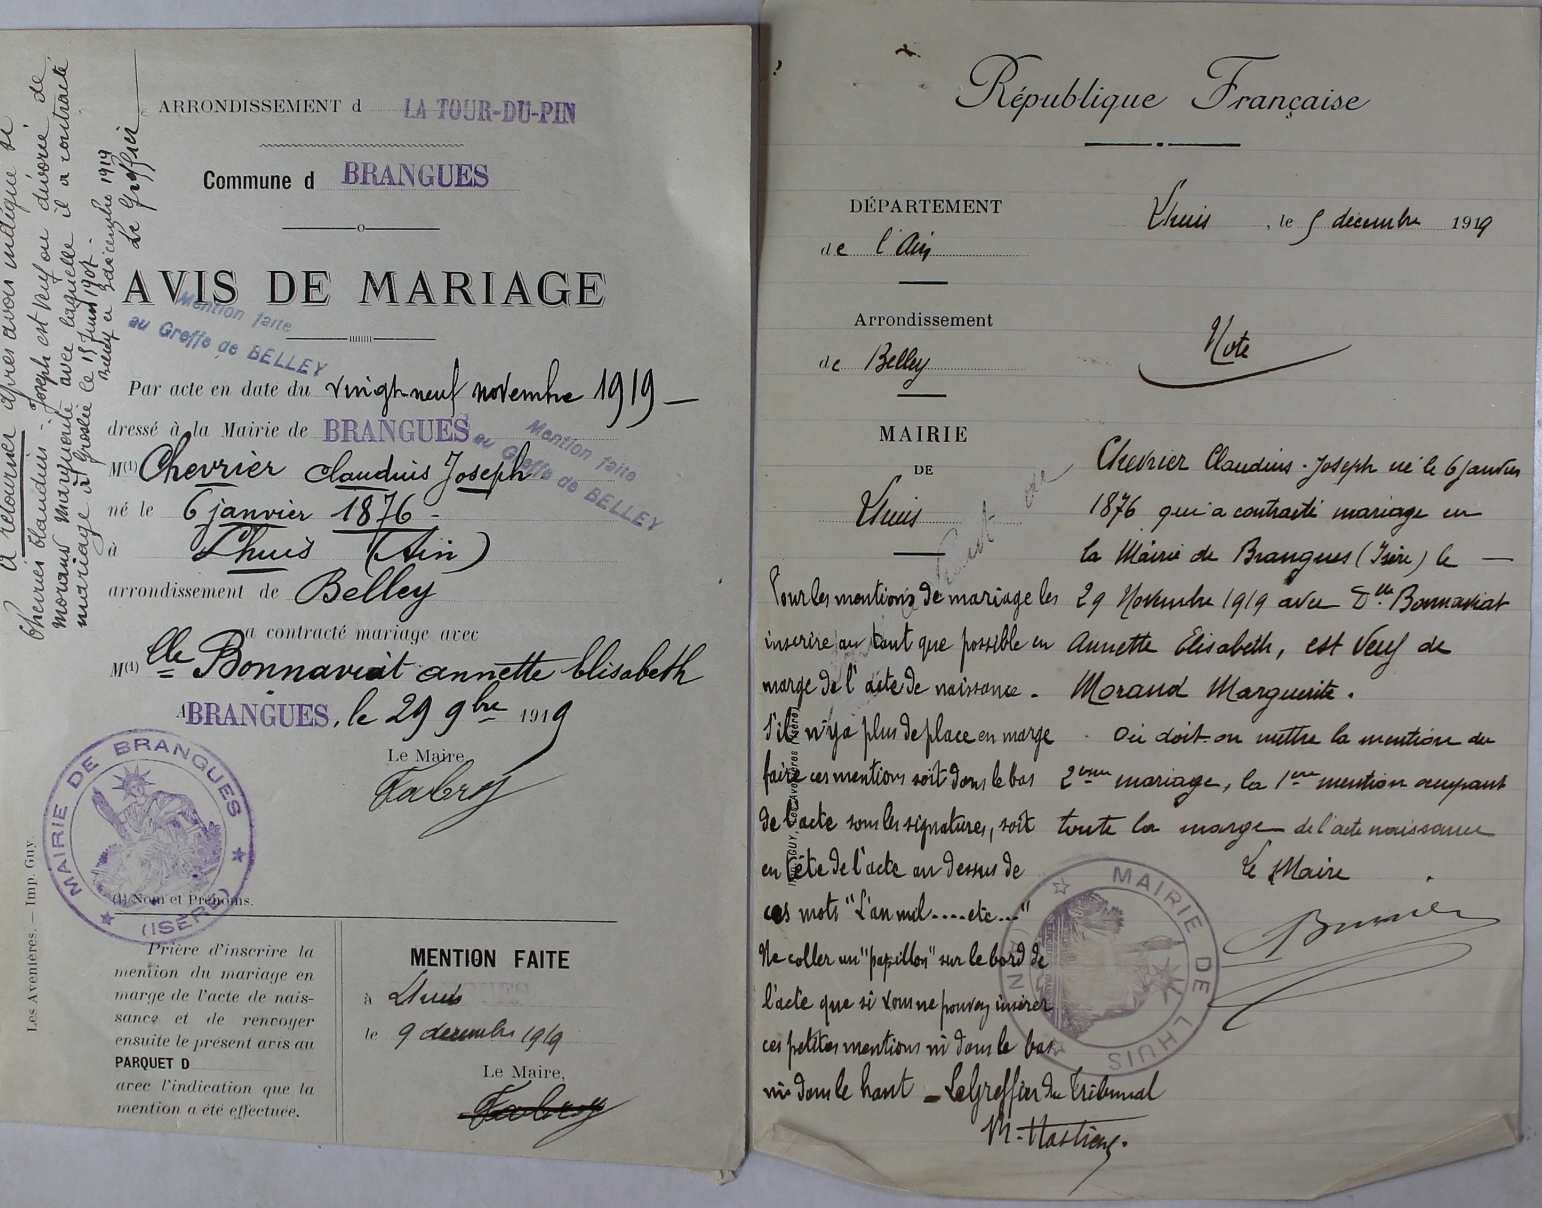 à retourner après avoir indiqué si
Chevrier Claudius-Joseph est veuf ou divorcé de
Morand Marguerite avec laquelle il a contracté
mariage à Groslée le 15 juin 1907.
Belley ce 3 décembre 1919
Le Greffier
ARRONDISSEMENT d LA TOUR-DU-PIN
Commune d BRANGUES
AVIS DE MARIAGE
Mention faite
au Greffe de BELLEY
Par acte en date du vingt-neuf novembre 1919
dressé à la Mairie de BRANGUES
Mention faite
au Greffe de BELLEY
M(1) Chevrier Claudius Joseph
né le 6 janvier 1876
à Lhuis (Ain)
arrondissement de Belley
a contracté mariage avec
M(1) lle Bonnaviat annette Elisabeth
A BRANGUES, le 29 9bre 1919
Le Maire,
Fabry
MAIRIE DE BRANGUES
(ISÈRE)
(1) Nom et Prénoms.
Les Avenières. — Imp. Guy.
Prière d'inscrire la
mention du mariage en
marge de l'acte de nais-
sance et de renvoyer
ensuite le présent avis au
PARQUET D
avec l'indication que la
mention a été effectuée.
MENTION FAITE
à Lhuis
le 9 décembre 1919
Le Maire,
Fabry
République Française
DÉPARTEMENT
de l'Ain
Lhuis, le 5 décembre 1919
Arrondissement
de Belley
Note
MAIRIE
DE
Lhuis
Chevrier Claudius-Joseph né le 6 janvier
1876 qui a contracté mariage en
la Mairie de Brangues (Isère) le
29 Novembre 1919 avec Dlle Bonnaviat
Annette Elisabeth, est veuf de
Morand Marguerite.
Où doit-on mettre la mention du
2ème mariage, la 1ère mention occupant
toute la marge de l'acte naissance
Le Maire
MAIRIE DE LHUIS
Pour les mentions de mariage les
inscrire autant que possible en
marge de l'acte de naissance.
S'il n'y a plus de place en marge
faire ces mentions soit dans le bas
de l'acte sous les signatures, soit
en tête de l'acte au dessus de
ces mots "L'an mil....etc..."
Ne coller un "papillon" sur le bord de
l'acte que si vous ne pouvez insérer
ces petites mentions ni dans le bas
ni dans le haut – Le Greffier du Tribunal